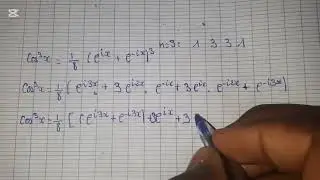 cos³x = 1/8 (e^{ix} + e^{-ix})³ n=3: 1 3 3 1
cos³x = 1/8 [ e^{i3x} + 3 e^{i2x} . e^{-ix} + 3 e^{ix} . e^{-i2x} + e^{-i3x} ]
cos³x = 1/8 [ (e^{i3x} + e^{-i3x}) + 3e^{ix} + 3